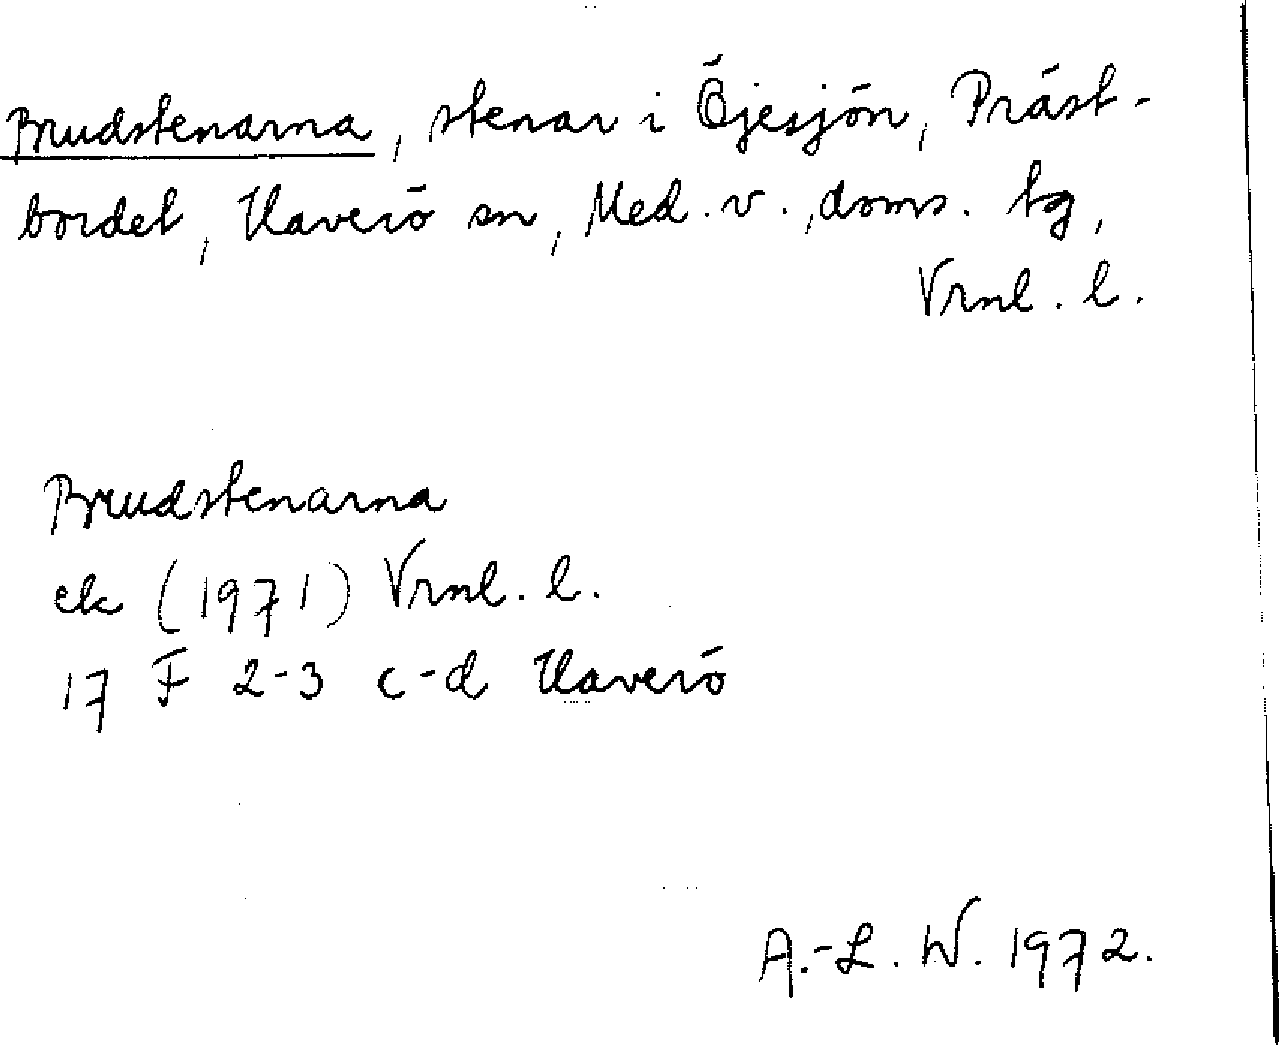 Brudstenarna, stenar i Öjesjön, Präst-
bordet, Haverö sn, Med. v., doms. tg,
Vrnl. l.
Brudstenarna
ek (1971) Vrnl. l.
17 F 2-3 c-d Haverö
A.-L. W. 1972.